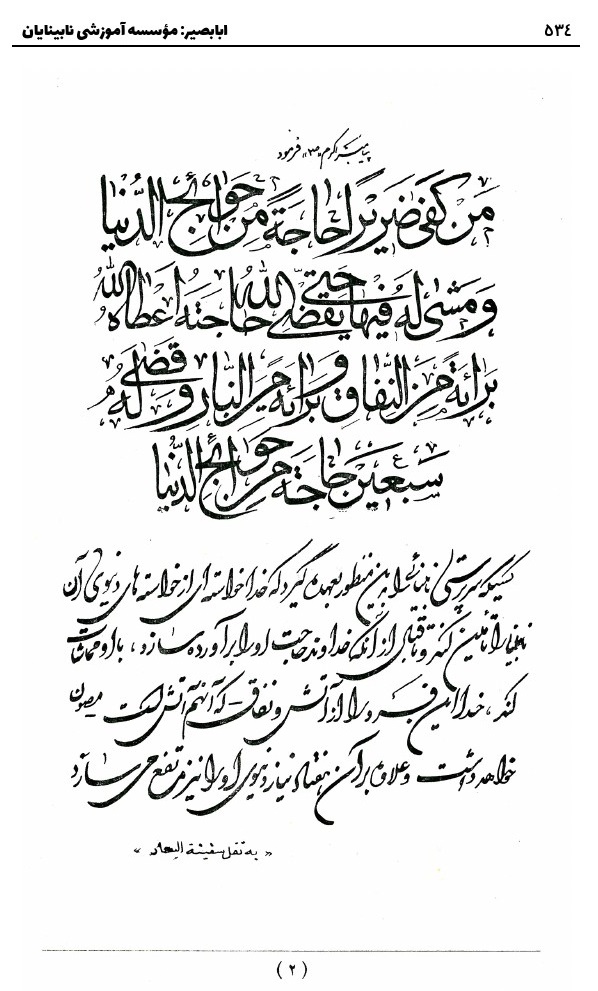 ٥٣٤
ابابصیر: مؤسسه آموزشی نابینایان
پیامبر اکرم «ص» فرمود
مَن كَفىٰ ضَريرًا حاجَةً مِن حَوائِجِ الدُّنيا
وَمَشىٰ لَهُ فيها حَتّىٰ يَقضِيَ اللهُ حاجَتَه اَعطاهُ اللهُ
بَرائَةً مِنَ النِّفاقِ وَ بَرائَةً مِنَ النّارِ وَ قَضىٰ لَهُ
سَبعينَ حاجَةً مِن حَوائِجِ الدُّنيا
کسیکه سرپرستی نابینائی را به این منظور بعهده گیرد که خدا خواسته ای از خواسته های دنیوی آن
نابینا را تأمین کند و تا قبل از آنکه خداوند حاجت او را برآورده سازد، با او مماشات
کند، خدا این فرد را از آتش و نفاق - که آنهم آتش است - مصون
خواهد داشت و علاوه بر آن هفتاد نیاز دنیوی او را نیز مرتفع می سازد
« به نقل سفینة البحار »
( ٢ )